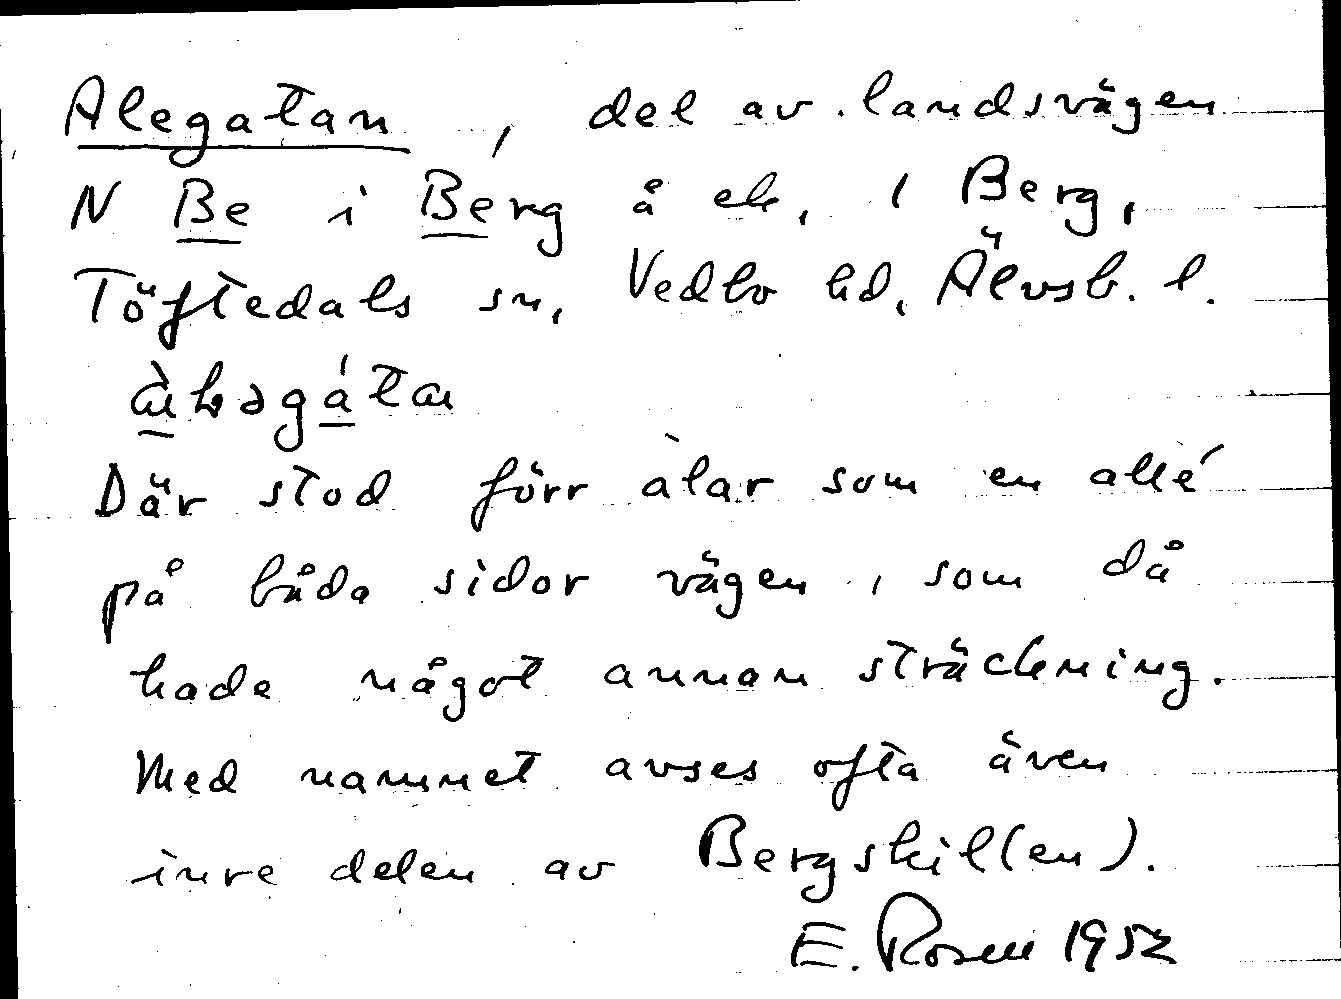 Alegatan, del av landsvägen
N Be i Berg å ek. 1 Berg,
Töftedals sn, Vedbo hd, Älvsb. l.
Där stod förr alar som en allé
på båda sidor vägen, som då
hade något annan sträckning.
Med namnet avses ofta även
inre delen av Bergskil(en).
E. Rosell 1952